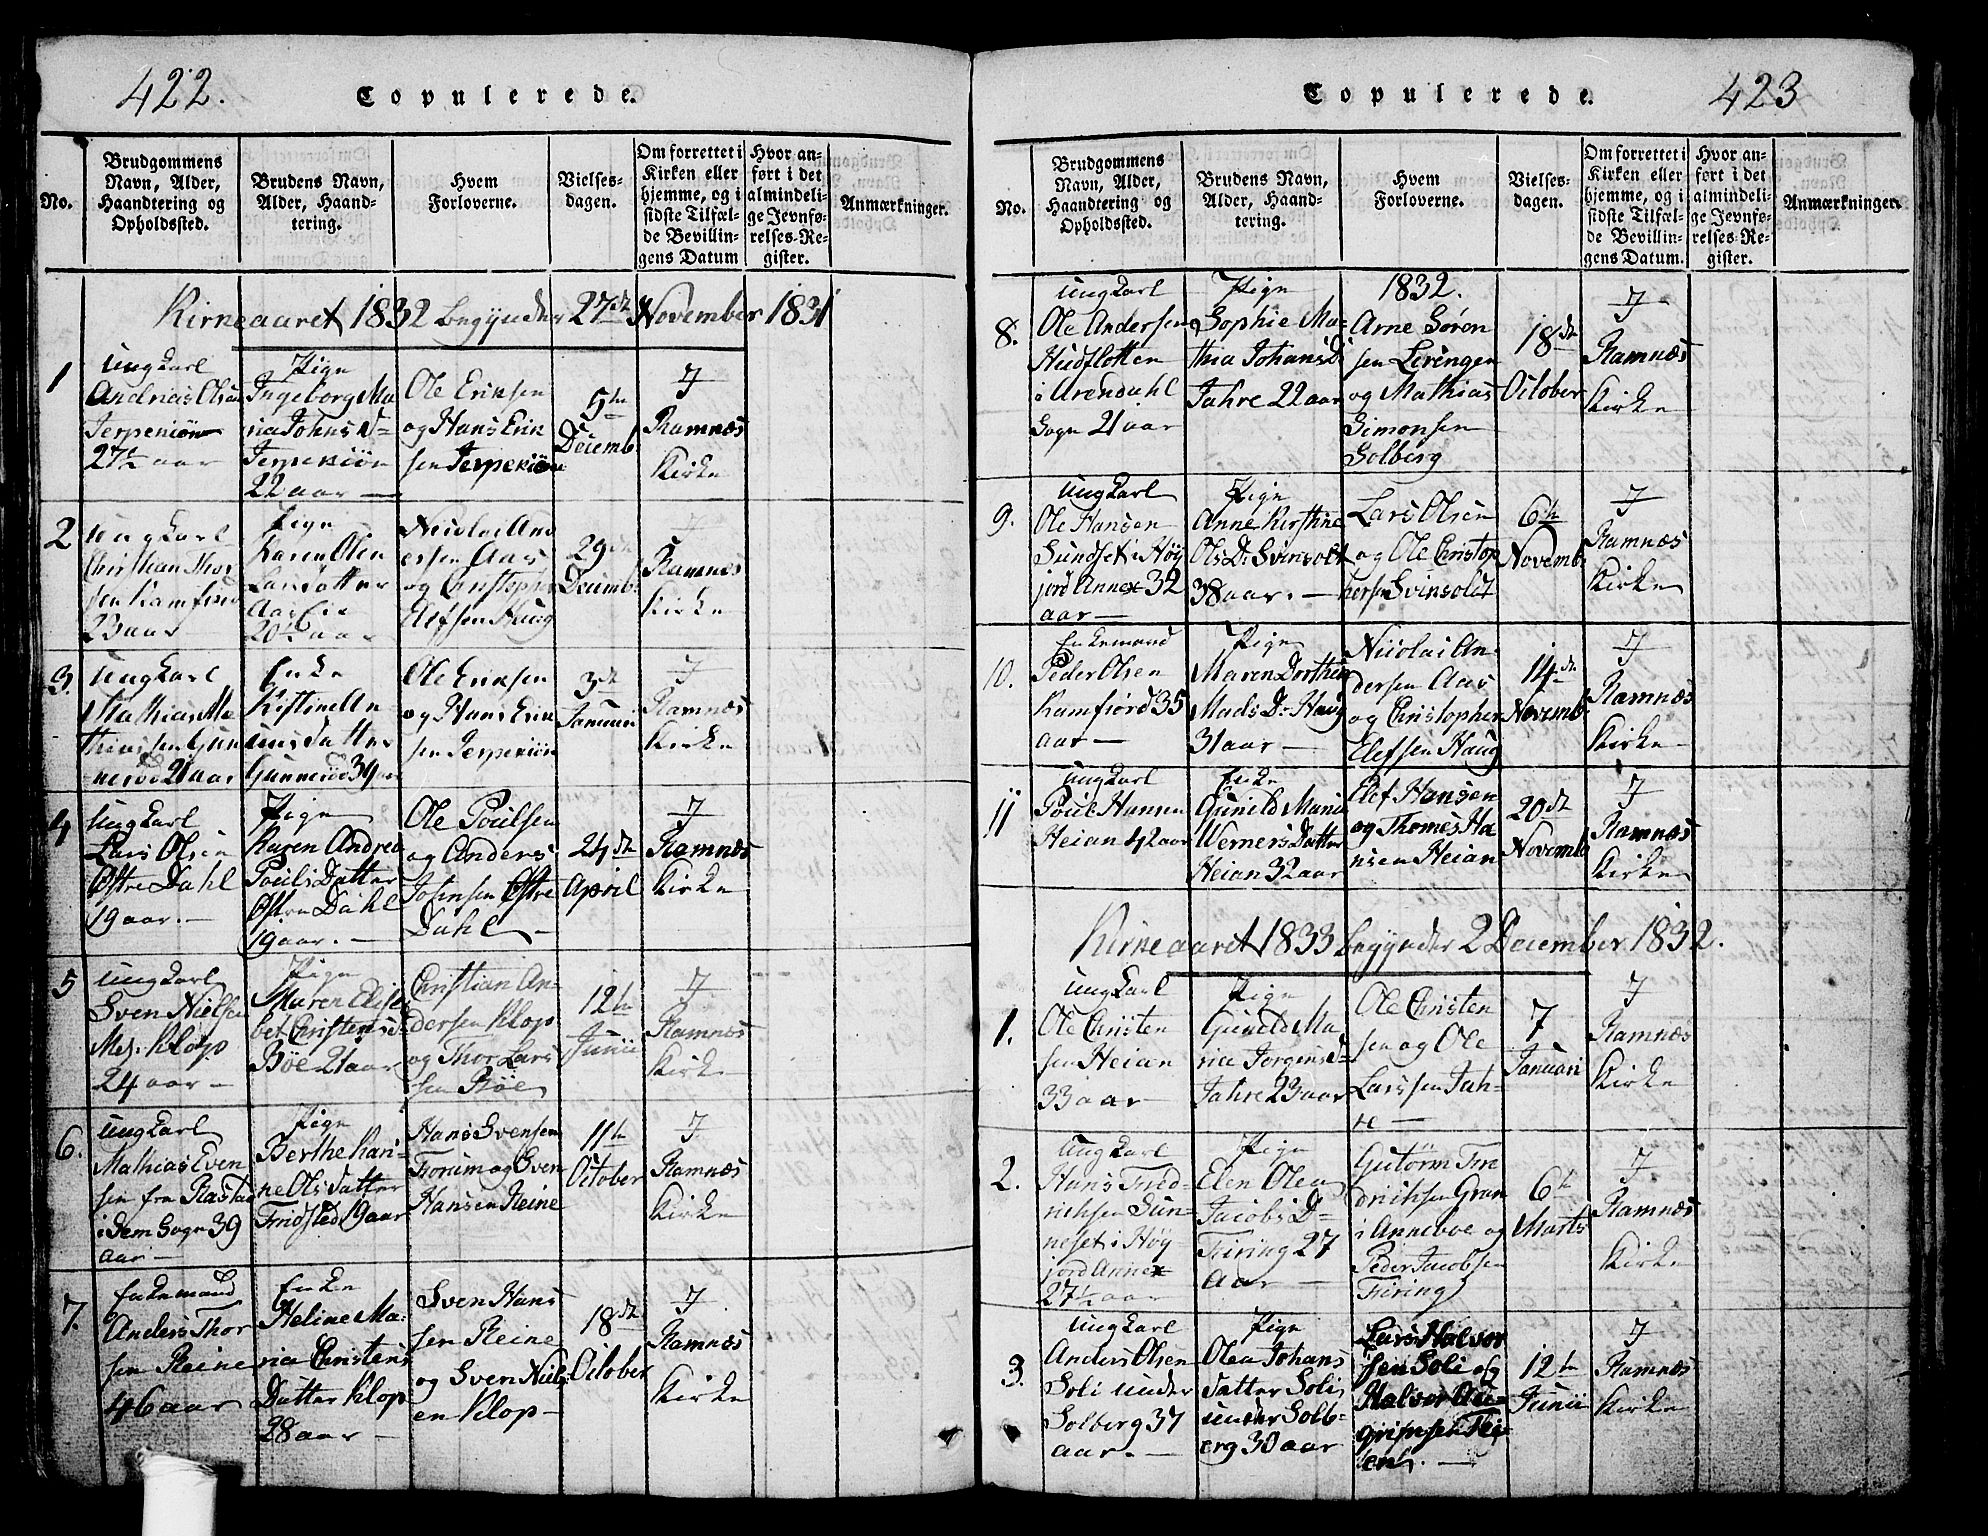 422.
Copulerede.
No.
Brudgommens
Navn, Alder,
Haandtering og
Opholdssted.
Brudens Navn,
Alder, Haand-
tering.
Hvem
Forloverne.
Vielses-
dagen.
Om forrettet i
Kirken eller
hjemme, og i
sidste Tilfæl-
de Bevillin-
gens Datum
Hvor an-
ført i det
almindeli-
ge Jevnfø-
relses-Re-
gister.
Anmærkninger.
Kirkeaaret 1832 begynder 27de November 1831
1
Ungkarl
Andrias Olsen
Jerpekiøn
27½ aar
Pige
Ingeborg Ma
ria Johns D=
Jerpekiøn
22 aar —
Ole Eriksen
og Hans Erik
sen Jerpekiøn
5te
Decemb.
I
Ramnæs
Kirke
2
Ungkarl
Christian Thor
sen Kamfiord
23 aar
Pige
Karen Olea
Larsdatter
Aas Eie
20½ aar
Nicolai And
ersen Aas
og Christopher
Elefsen Haug
29de
Decemb.
I
Ramnæs
Kirke
3.
Ungkarl
Mathias Ma
thiassen Gun
nerød 21 aar
Enke
Kistine An
unsdatter
Gunnerød 39 aar
Ole Eriksen
og Hans Erik
sen Jerpekiøn
3de
Januari
I
Ramnæs
Kirke
4
Ungkarl
Lars Olsen
Østre Dahl
19 aar. —
Pige
Karen Andrea
Pouls Datter
Østre Dahl
19 aar. —
Ole Poulsen
og Anders
Johnsen Østre
Dahl —
24de
April
I
Ramnæs
Kirke
5
Ungkarl
Sven Nielsen
Mel. Klop
24 aar —
Pige
Maren Elisa
bet Christens D
Bøe 21 aar
Christian An-
dersen Klop
og Thor Lars
sen Bøe
12te
Junii
I
Ramnæs
Kirke
6.
Ungkarl
Mathias Even
sen fra
i Sem Sogn 39
aar —
Pige
Berthe Kari-
ne Olsdatter
Fridsted 19 aar
Hans Svensen
og Sven
Hansen Reine
11te
October
I
Ramnæs
Kirke
7.
Enkemand
Anders Thor
sen Reine
46 aar
Enke
Heline Ma-
ria Christens
Datter Klop
28 aar —
Sven Hans
sen Reine
og Sven Niels
en Klop —
18de
October
I
Ramnæs
Kirke
Copulerede.
423
No.
Brudgommens
Navn, Alder,
Haandtering og
Opholdssted.
Brudens Navn,
Alder, Haand-
tering.
Hvem
Forloverne.
Vielses-
dagen.
Om forrettet i
Kirken eller
hjemme, og i
sidste Tilfæl-
de Bevillin-
gens Datum.
Hvor an-
ført i det
almindeli-
ge Jevnfø-
relses-Re-
gister.
Anmærkninger.
8.
Ungkarl
Ole Andersen
Hudflotten
i Arendahl
Sogn 21 aar
Pige
Sophie Ma-
thia Johans D.
Jahre 22 aar
1832.
Arne Søren
sen Lerengen
og Mathias
Simonsen
Solberg
18de
October
I
Ramnæs
Kirke
9.
Ungkarl
Ole Hansen
Sundset i Høy
jord Annex 32
aar —
Pige
Anne Kirstine
Ols D. Svinsolt
38 aar. —
Lars Olsen
og Ole Christop
hersen Svinsolt
6te
Novemb.
I
Ramnæs
Kirke
10.
Enkemand
Peder Olsen
Kamfiord 35
aar —
Pige
Maren Dorthea
Mads D. Haug
31 aar —
Nicolai An-
dersen Aas
og Christopher
Elefsen Haug
14de
Novemb.
I
Ramnæs
Kirke
11
Ungkarl
Poul Hansen
Heian 42 aar
Enke
Gunild Maria
Werners Datter
Heian 32 aar
Elef Hansen
og Thomes Ha
nsen Heian
20de
Novemb
I
Ramnæs
Kirke
Kirkeaaret 1833 begynder 2 December 1832.
1.
Ungkarl
Ole Christen
sen Heian
33 aar —
Pige
Gunild Ma
ria Jorgens D=
Jahre 23 aar
Ole Christen
sen og Ole
Larssen Jah-
re —
7
Januari
I
Ramnæs
Kirke
2.
Ungkarl
Hans Fred-
richsen Sun-
neset i Høy-
jord Annex
27½ aar
Pige
Elen Olea
Jacobs D=
Firing 27
Aar —
Gutorm Fre
drichsen Gran
i Anneboe og
Peder Jacobsen
Firing
6te
Marts
I
Ramnæs
Kirke
3.
Ungkarl
Anders Olsen
Soli under
Solberg 37
aar. —
Pige
Olea Johans
datter Soli
under Solb-
erg 30 aar
Lars Halvor
sen Soli og
Halvor
12te
Junii
I
Ramnæs
Kirke